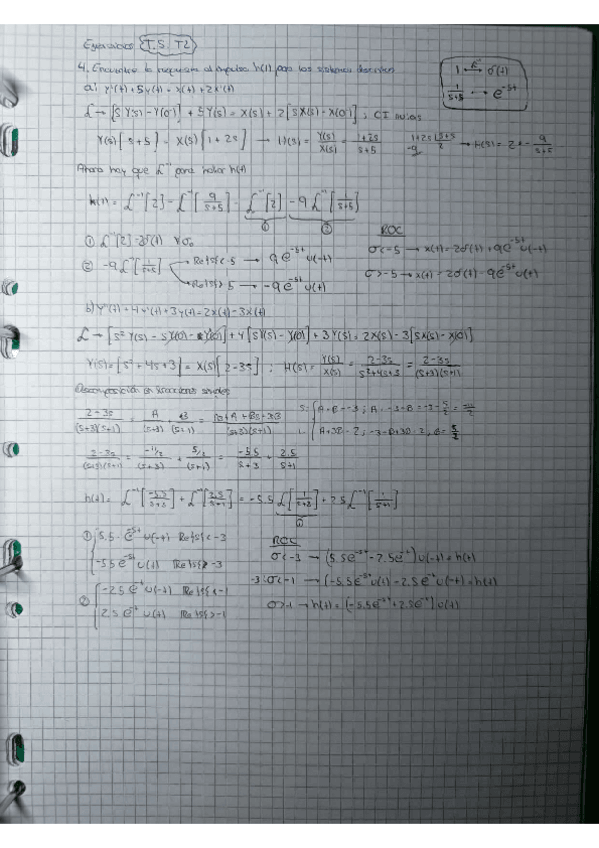 Ejercicios T.S T2
4. Encuentre la respuesta al impulso h(t) para los sistemas
1 → σ(t)
1/(s+5) → e^-5t
a) y'(t)+5y(t) = x(t)+2x'(t)
L → [sY(s)-Y(0)] + 5Y(s) = X(s)+2[sX(s)-X(0)] ; CI nulas
Y(s)[s+5] = X(s)[1+2s] → H(s) = Y(s)/X(s) = (1+2s)/(s+5)
1+2s | s+5
-9 2 → H(s) = 2 - 9/(s+5)
Ahora hay que L^-1 para hallar h(t)
h(t) = L^-1[2] - L^-1[9/(s+5)] = L^-1[2] - 9L^-1[1/(s+5)]
① ②
① L^-1[2] = 2σ(t) ∀σ
② -9L^-1[1/(s+5)]
Re{s}<-5 → 9e^-5t u(-t)
Re{s}>-5 → -9e^-5t u(t)
ROC
σ<-5 → x(t) = 2σ(t) + 9e^-5t u(-t)
σ>-5 → x(t) = 2σ(t) - 9e^-5t u(t)
b) y''(t)+4y'(t)+3y(t) = 2x(t)-3x'(t)
L → [s²Y(s)-sY(0)-Y'(0)] + 4[sY(s)-Y(0)] + 3Y(s) = 2X(s)-3[sX(s)-X(0)]
Y(s)=[s²+4s+3] = X(s)[2-3s] ; H(s) = Y(s)/X(s) = (2-3s)/(s²+4s+3) = (2-3s)/((s+3)(s+1))
Descomposición en fracciones simples
(2-3s)/((s+3)(s+1)) = A/(s+3) + B/(s+1)
h(t) = L^-1[-5.5/(s+3)] + L^-1[2.5/(s+1)] = -5.5 L[1/(s+3)] + 2.5 L^-1[1/(s+1)]
①
① 5.5·e^-3t u(-t) Re{s}<-3
-5.5e^-3t u(t) Re{s}>-3
② -2.5e^-t u(-t) Re{s}<-1
2.5e^-t u(t) Re{s}>-1
ROC
σ<-3 → (5.5e^-3t - 2.5e^-t) u(-t) = h(t)
-3<σ<-1 → (-5.5e^-3t u(t) - 2.5e^-t u(-t) = h(t)
σ>-1 → h(t) = [-5.5e^-3t + 2.5e^-t] u(t)